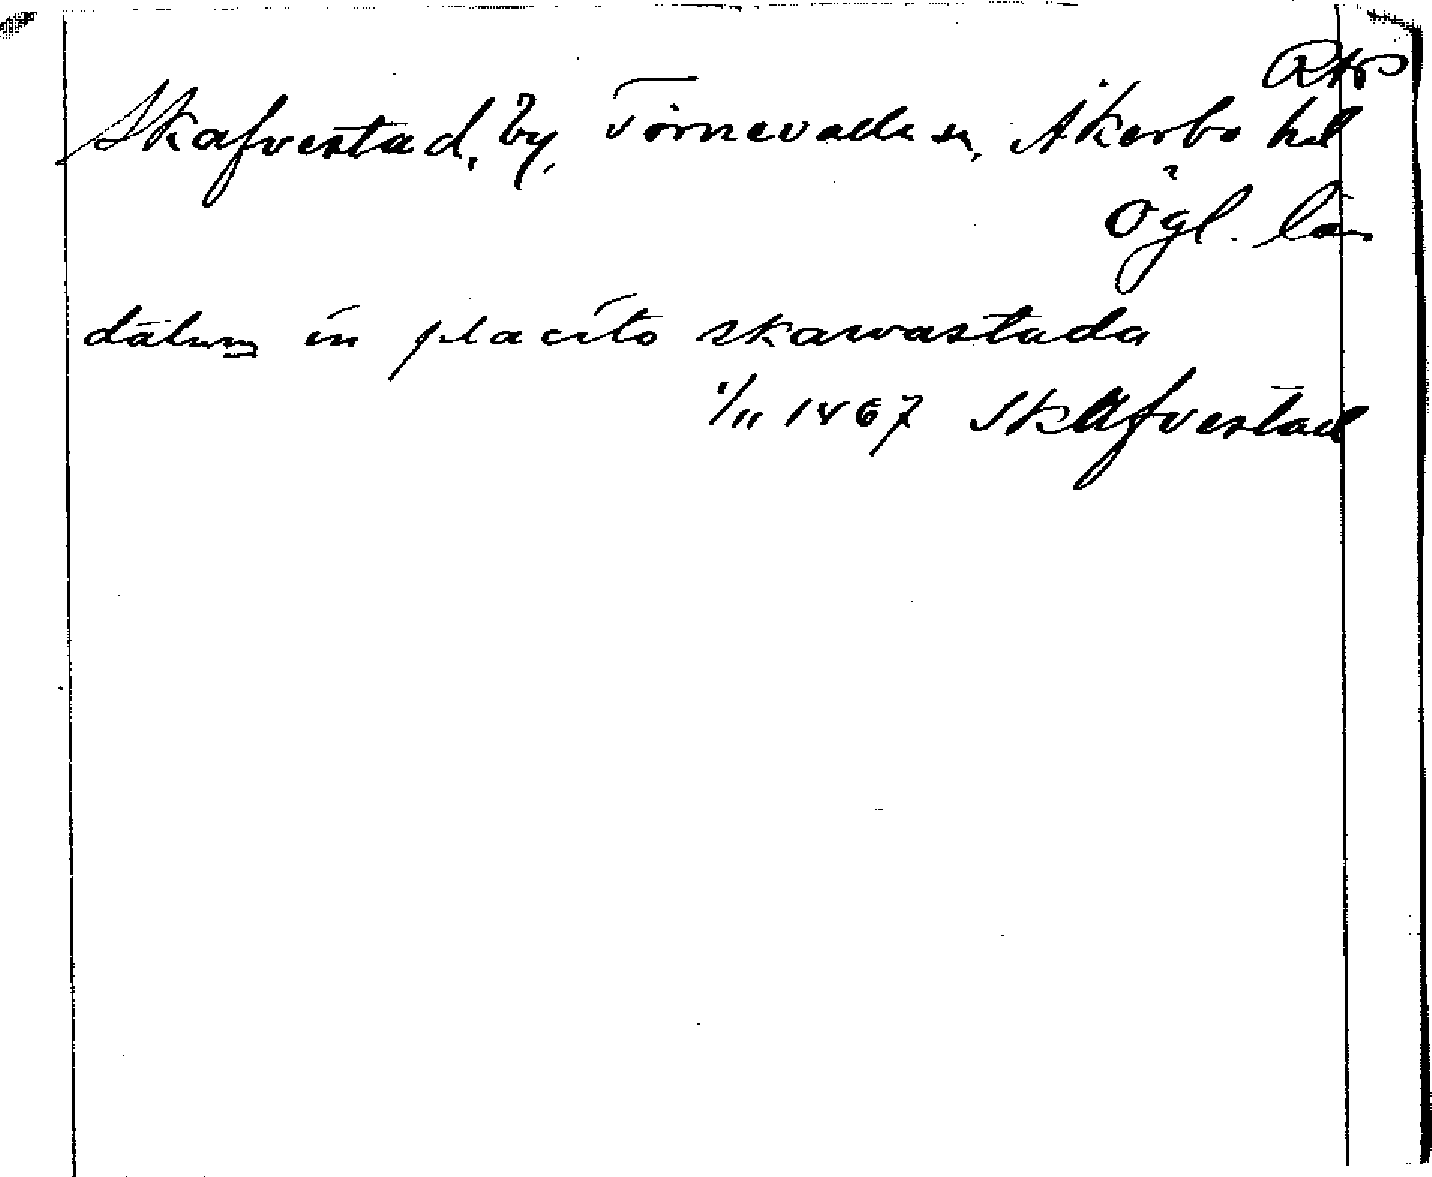 Skafvestad, by, Törnevalla sn, Åkerbo hd
Ögl. län
datum in placito skawastada
1/11 1467 Skafvestad